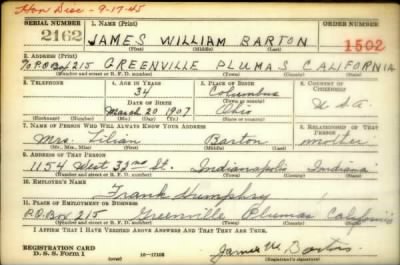 Hon Disc - 9-17-45
SERIAL NUMBER 1. Name (Print) ORDER NUMBER
2162 JAMES WILLIAM BARTON 1502
(First) (Middle) (Last)
2. Address (Print)
% P.O. Box 215 GREENVILLE PLUMAS CALIFORNIA
(Number and street or R. F. D. number) (Town) (County) (State)
3. Telephone 4. Age in Years 5. Place of Birth 6. Country of Citizenship
34 Columbus U S A
Date of Birth (Town or county)
March 20 1907 Ohio
(Exchange) (Number) (Mo.) (Day) (Yr.) (State or country)
7. Name of Person Who Will Always Know Your Address 8. Relationship of That Person
Mrs. Lilian Barton mother
(Mr., Mrs., Miss) (First) (Middle) (Last)
9. Address of That Person
1154 West 33rd St. Indianapolis Indiana
(Number and street or R. F. D. number) (Town) (County) (State)
10. Employer's Name
Frank Humphry
11. Place of Employment or Business
P.O. Box 215 Greenville Plumas California
(Number and street or R. F. D. number) (Town) (County) (State)
I Affirm That I Have Verified Above Answers and That They Are True.
REGISTRATION CARD
D. S. S. Form 1 16—17105 James W. Barton
(Registrant's signature)